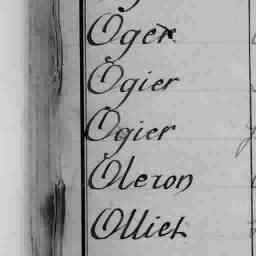 Oger
Ogier
Ogier
Oleron
Olliet